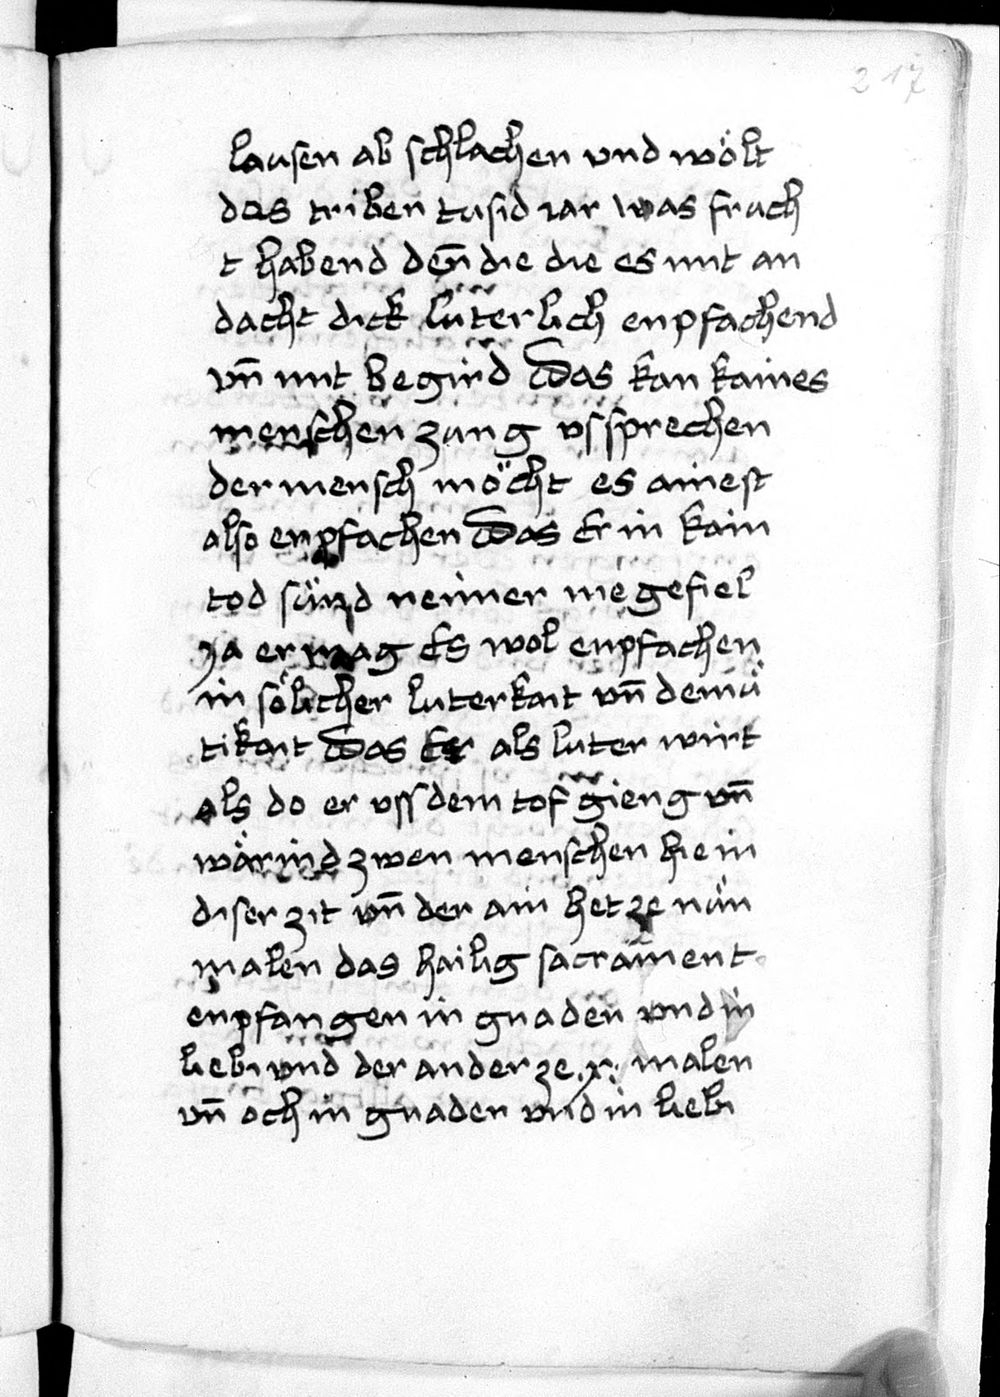 217
lausen ab schlachen vnd wölt
das triben tusid iar was fruch
t habend den̄ die die es mit an
dacht dick luterlich enpfachend
vn̄ mit begird Das kan kaines
menschen zung vssprechen
der mensch möcht es ainest
also enpfachen Das Er in kain
tod sünd neimer me gefiel
Ja er mag Es wol enpfachen
in sölicher luterkait vn̄ demü
tikait Das Er als luter wirt
als do er vss dem tof gieng vn̄
wärind zwen menschen hie in
diser zit vn̄ der ain het ze nün
malen das hailig sacrament
enpfangen in gnaden vnd in
liebi vnd der ander ze .x. malen
vn̄ och in gnaden vnd in liebi